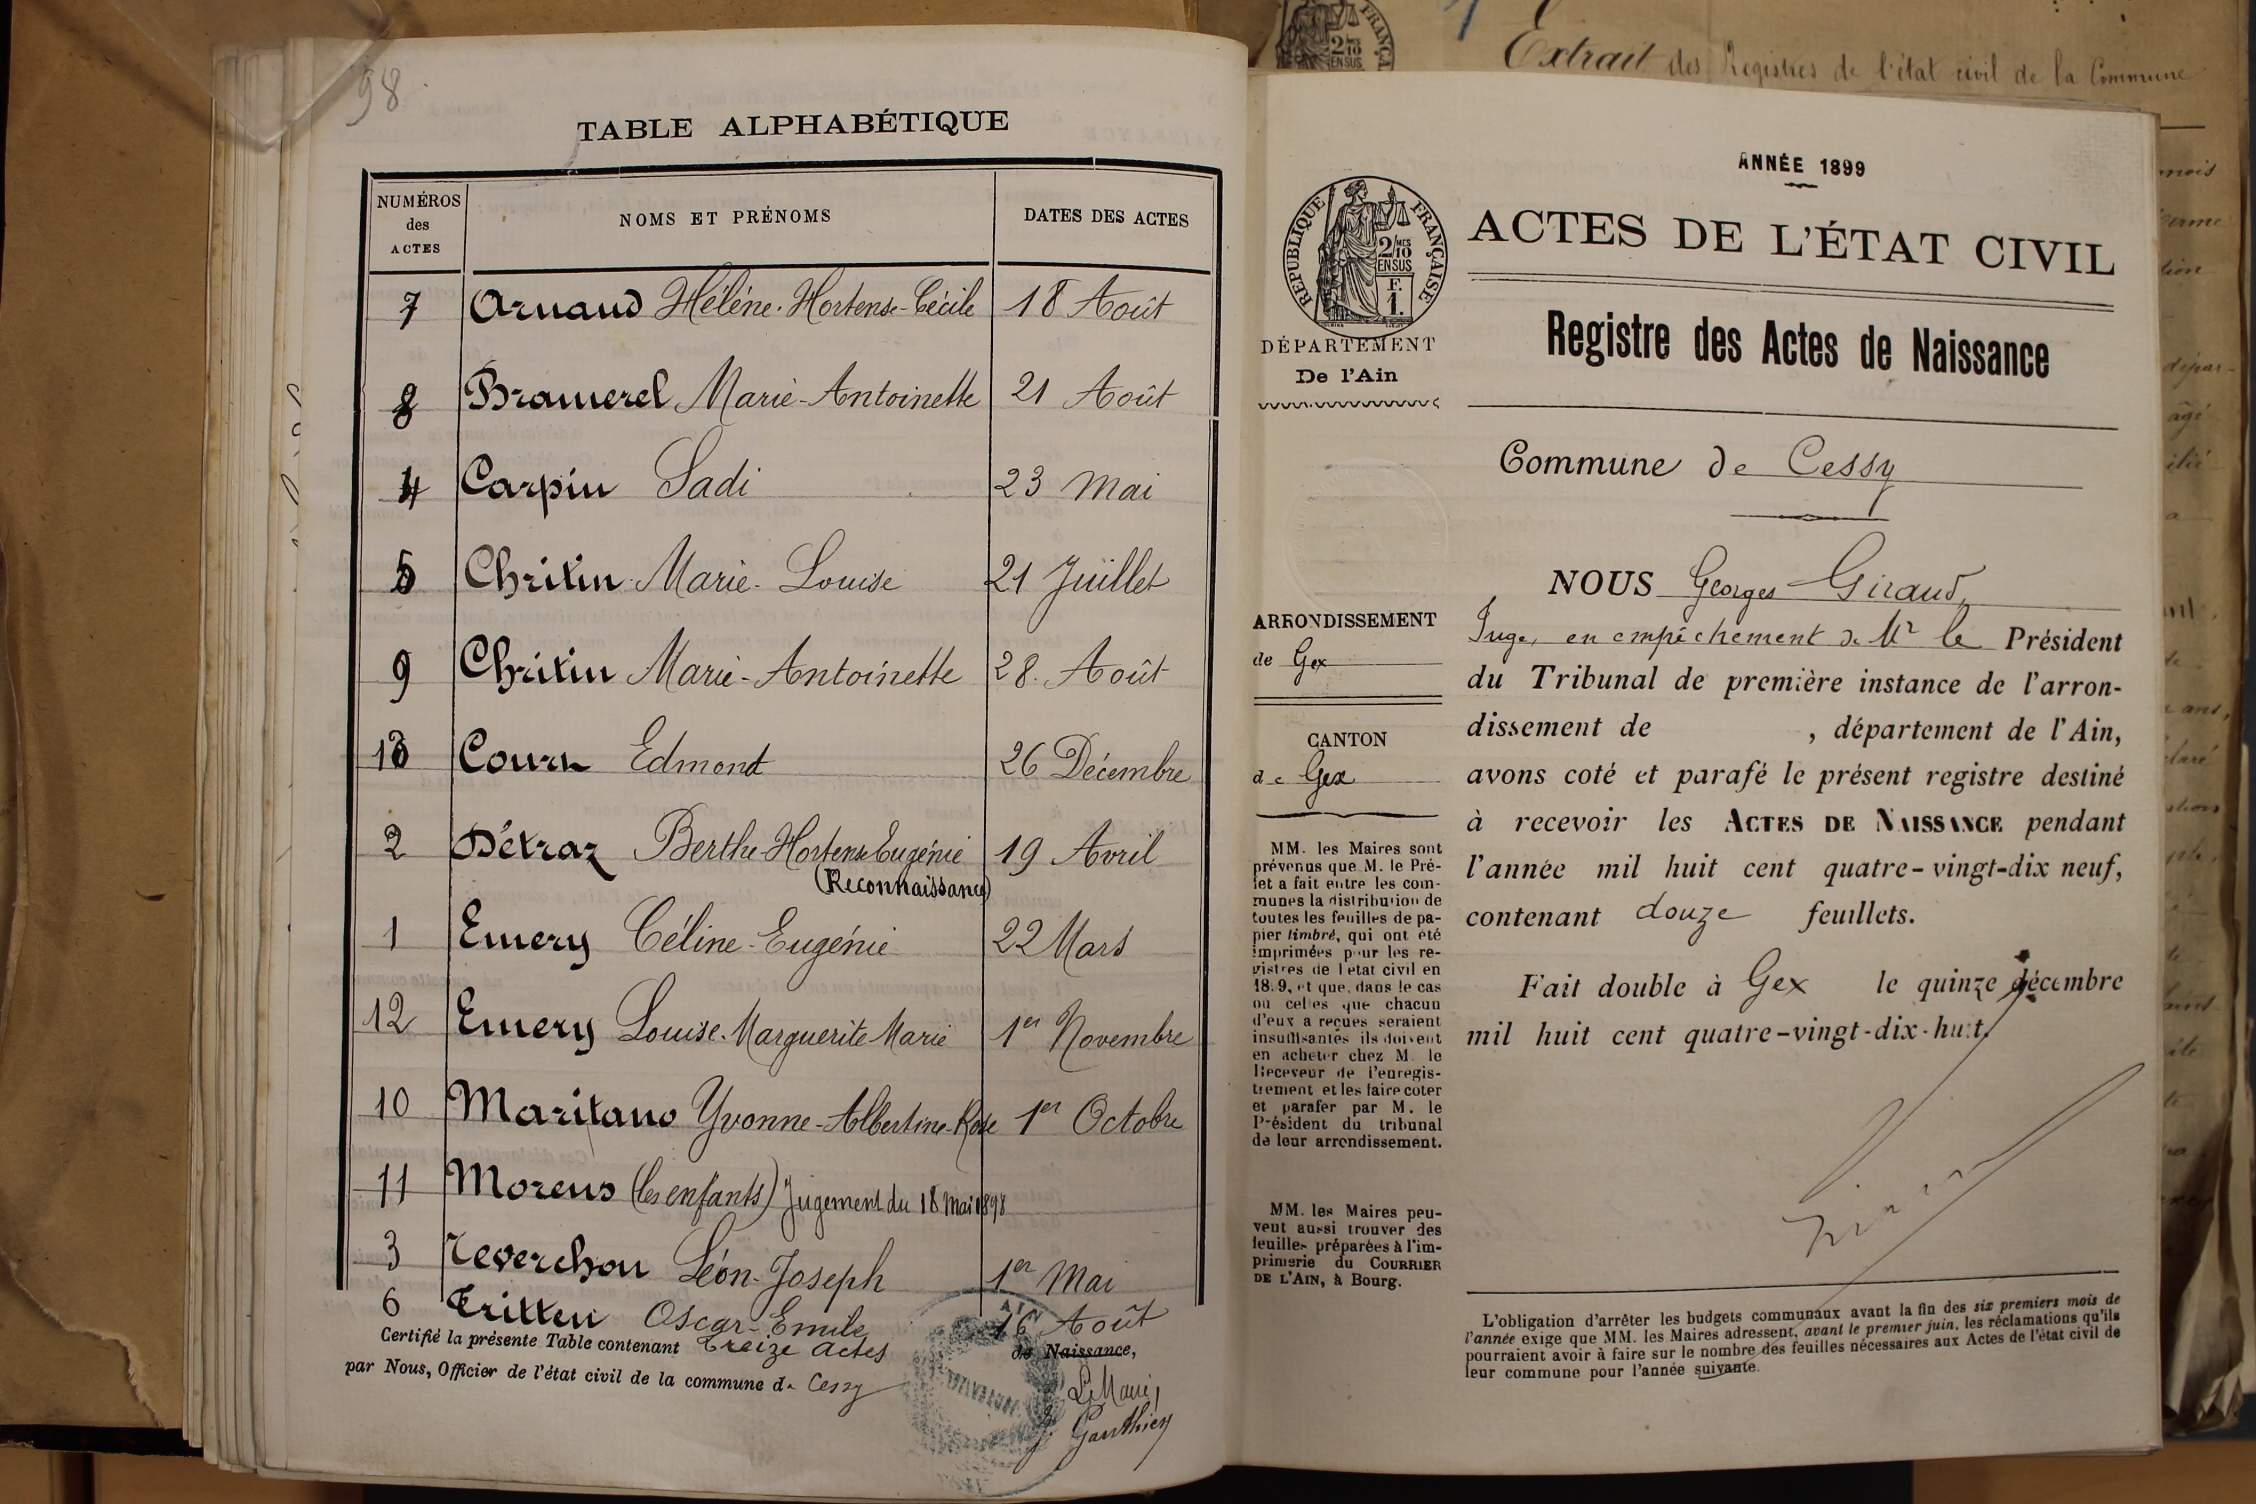 98
TABLE ALPHABÉTIQUE
NUMÉROS des ACTES
NOMS ET PRÉNOMS
DATES DES ACTES
7 Arnaud Hélène-Hortense-Cécile 18 Août
8 Bramerel Marie-Antoinette 21 Août
4 Carpin Sadi 23 Mai
5 Chritin Marie-Louise 21 Juillet
9 Chritin Marie-Antoinette 28 Août
13 Court Edmond 26 Décembre
2 Détraz Berthe-Hortense Eugénie 19 Avril
(Reconnaissance)
1 Emery Céline-Eugénie 22 Mars
12 Emery Louise-Marguerite Marie 1er Novembre
10 Maritano Yvonne-Albertine-Rose 1er Octobre
11 Morens (les enfants) Jugement du 18 Mai 1898
3 Reverchon Léon-Joseph 1er Mai
6 Tritten Oscar-Emile 16 Août
Certifié la présente Table contenant treize actes de Naissance,
par Nous, Officier de l'état civil de la commune de Cessy
Le Maire,
J. Gauthier
AIN
Extrait des Registres de l'état civil de la Commune
ANNÉE 1899
RÉPUBLIQUE FRANÇAISE
2/10 MES
EN SUS
F.
1.
ACTES DE L'ÉTAT CIVIL
DÉPARTEMENT
De l'Ain
Registre des Actes de Naissance
Commune de Cessy
NOUS Georges Giraud,
Juge, en empêchement de Mr le Président
du Tribunal de première instance de l'arron-
dissement de , département de l'Ain,
avons coté et parafé le présent registre destiné
à recevoir les ACTES DE NAISSANCE pendant
l'année mil huit cent quatre-vingt-dix neuf,
contenant douze feuillets.
Fait double à Gex le quinze décembre
mil huit cent quatre-vingt-dix-huit.
ARRONDISSEMENT
de Gex
CANTON
de Gex
MM. les Maires sont
prévenus que M. le Pré-
fet a fait entre les com-
munes la distribution de
toutes les feuilles de pa-
pier timbré, qui ont été
imprimées pour les re-
gistres de l'état civil en
1899, et que, dans le cas
où celles que chacun
d'eux a reçues seraient
insuffisantes ils doivent
en acheter chez M. le
Receveur de l'enregis-
trement et les faire coter
et parafer par M. le
Président du tribunal
de leur arrondissement.
MM. les Maires peu-
vent aussi trouver des
feuilles préparées à l'im-
primerie du COURRIER
DE L'AIN, à Bourg.
L'obligation d'arrêter les budgets communaux avant la fin des six premiers mois de
l'année exige que MM. les Maires adressent, avant le premier juin, les réclamations qu'ils
pourraient avoir à faire sur le nombre des feuilles nécessaires aux Actes de l'état civil de
leur commune pour l'année suivante.